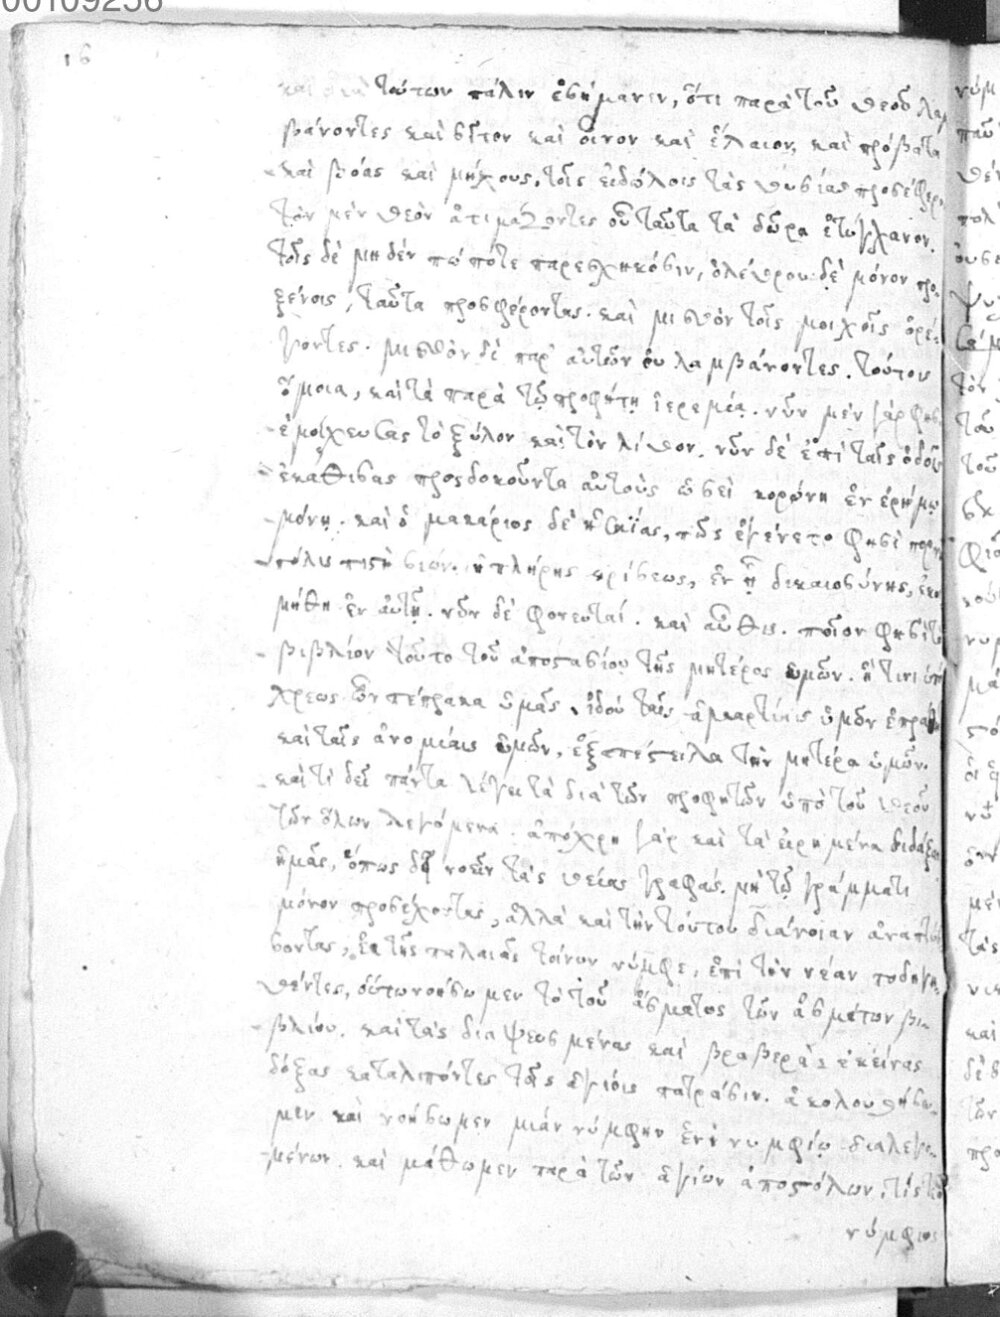 00109256
16
καὶ διὰ τούτων πάλιν ἐσήμανεν, ὅτι παρὰ τοῦ θεοῦ λαμ
βάνοντες καὶ σῖτον καὶ οἶνον καὶ ἔλαιον, καὶ πρόβατα
καὶ βόας καὶ μόσχους, τοῖς εἰδώλοις τὰς θυσίας προσέφερον
τὸν μὲν θεὸν ἀτιμάζοντες οὗ ταῦτα τὰ δῶρα ἐτύγχανον.
τοῖς δὲ μηδὲν πώποτε παρεσχηκόσιν, ὀλέθρου δὲ μόνον προ
ξένοις, ταῦτα προσφέροντας. καὶ μισθὸν τοῖς μοιχοῖς ὀρέ
γοντες. μισθὸν δὲ παρ' αὐτῶν οὐ λαμβάνοντες. τούτοις
ὅμοια, καὶ τὰ παρὰ τῷ προφήτῃ ἱερεμίᾳ. νῦν μὲν γάρ φησιν
ἐμοίχευσας τὸ ξύλον καὶ τὸν λίθον. νῦν δὲ ἐπὶ ταῖς ὁδοῖς
ἐκάθισας προσδοκοῦντα αὐτοὺς ὡσεὶ κορώνη ἐν ἐρήμῳ
μόνη. καὶ ὁ μακάριος δὲ ἡσαΐας, πῶς ἐγένετο φησὶ πόρνη
πόλις πιστὴ σιών. ἡ πλήρης κρίσεως, ἐν ᾗ δικαιοσύνης, ἐκοι
μήθη ἐν αὐτῇ. νῦν δὲ φονευταί. καὶ αὖθις. ποῖον φησὶ τὸ
βιβλίον τοῦτο τοῦ ἀποστασίου τῆς μητέρος ὑμῶν. ἢ τινι ὑπό
χρεως ὢν πέπρακα ὑμᾶς. ἰδοὺ ταῖς ἁμαρτίαις ὑμῶν ἐπράθητε
καὶ ταῖς ἀνομίαις ὑμῶν, ἐξαπέστειλα τὴν μητέρα ὑμῶν.
καὶ τί δεῖ πάντα λέγειν τὰ διὰ τῶν προφητῶν ὑπὸ τοῦ θεοῦ
τῶν ὅλων λεγόμενα. ἀπόχρη γὰρ καὶ τὰ εἰρημένα διδάξαι
ἡμᾶς, ὅπως δεῖ νοεῖν τὰς θείας γραφάς. μὴ τῷ γράμματι
μόνον προσέχοντας, ἀλλὰ καὶ τὴν τούτου διάνοιαν ἀναπτύσ
σοντας, ἐκ τῆς παλαιᾶς τοίνυν νύμφης, ἐπὶ τὸν νέαν ποδηγη
θέντες, οὕτω νοήσωμεν τὸ τοῦ ᾄσματος τῶν ᾀσμάτων βι
βλίον. καὶ τὰς διαψευσμένας καὶ βραβερὰς ἐκείνας
δόξας καταλιπόντες τοῖς ἁγίοις πατράσιν. ἀκολουθήσω
μεν καὶ νοήσωμεν μίαν νύμφην ἑνὶ νυμφίῳ διαλεγο
μένην. καὶ μάθωμεν παρὰ τῶν ἁγίων ἀποστόλων, τίς τε ὁ
νύμφιος